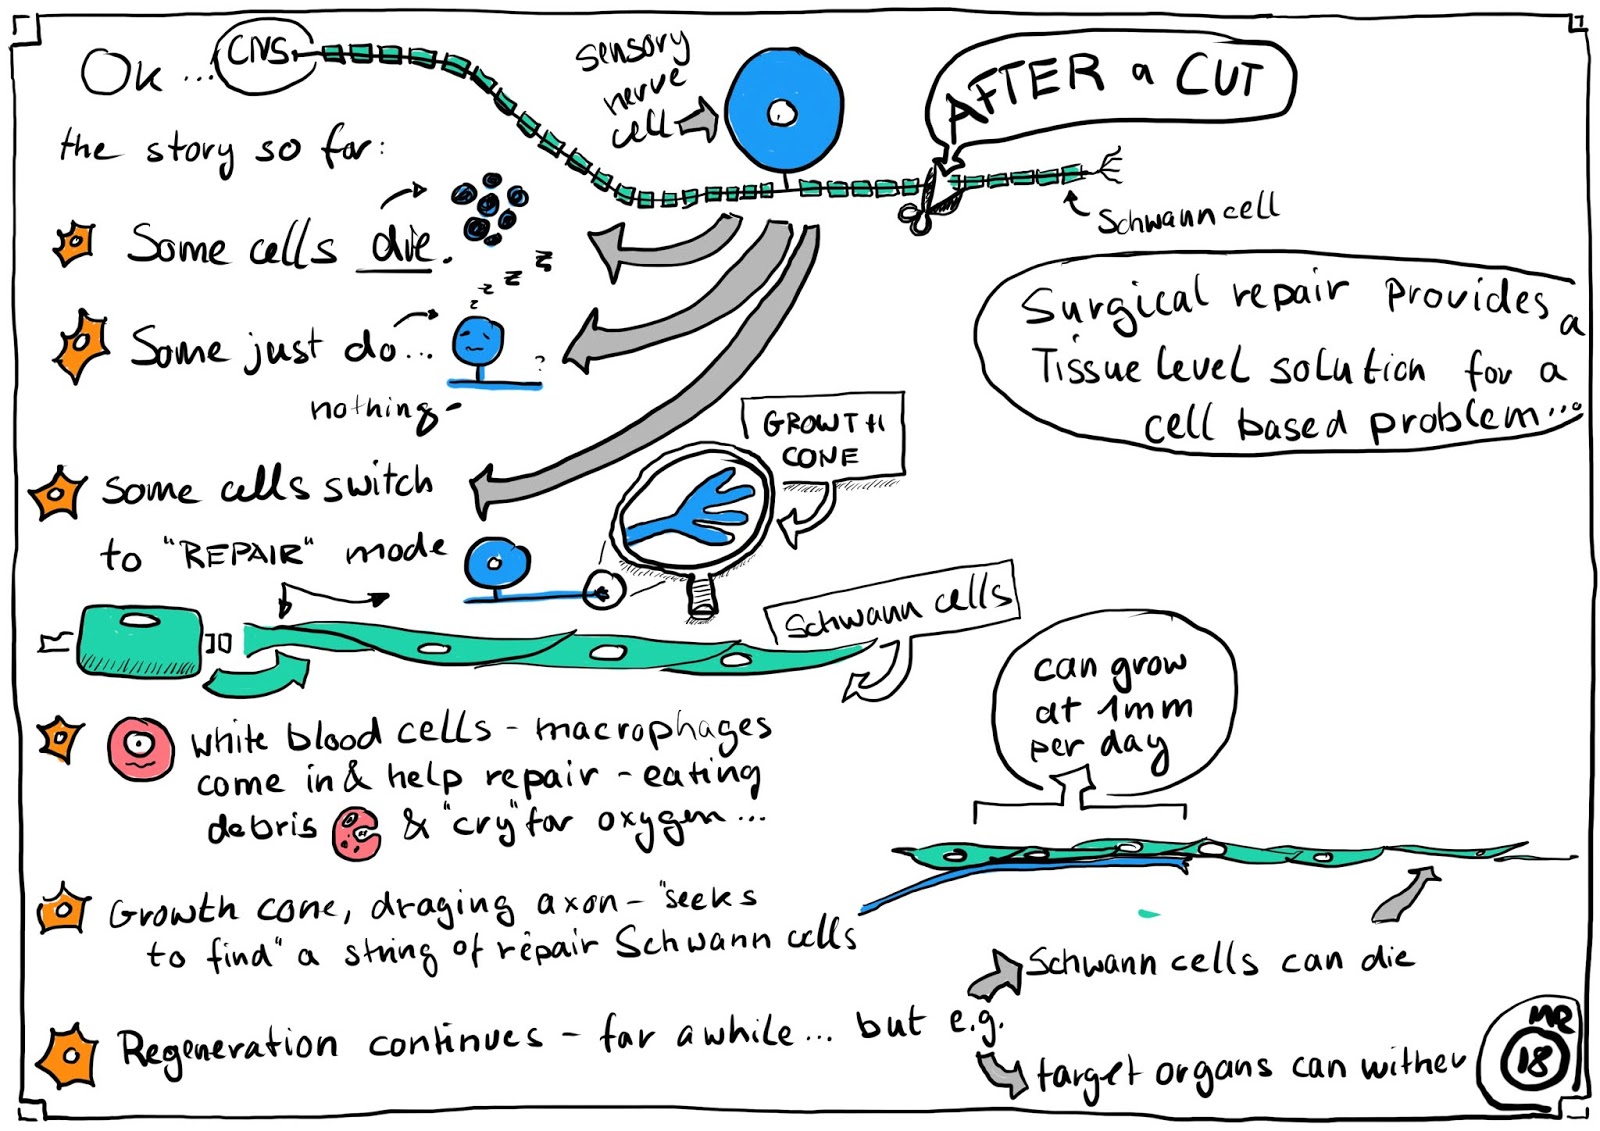 Ok ...
CNS
the story so far:
sensory
nerve
cell
AFTER a CUT
Schwann cell
Some cells die.
z z z z
Some just do...
nothing-
?
Surgical repair provides a
Tissue level solution for a
cell based problem...
some cells switch
to "REPAIR" mode
GROWTH
CONE
Schwann cells
white blood cells - macrophages
come in & help repair - eating
debris & "cry" for oxygen ...
can grow
at 1mm
per day
Growth cone, draging axon - "seeks
to find" a string of repair Schwann cells
Regeneration continues - for awhile ... but e.g.
Schwann cells can die
target organs can wither
MR
18